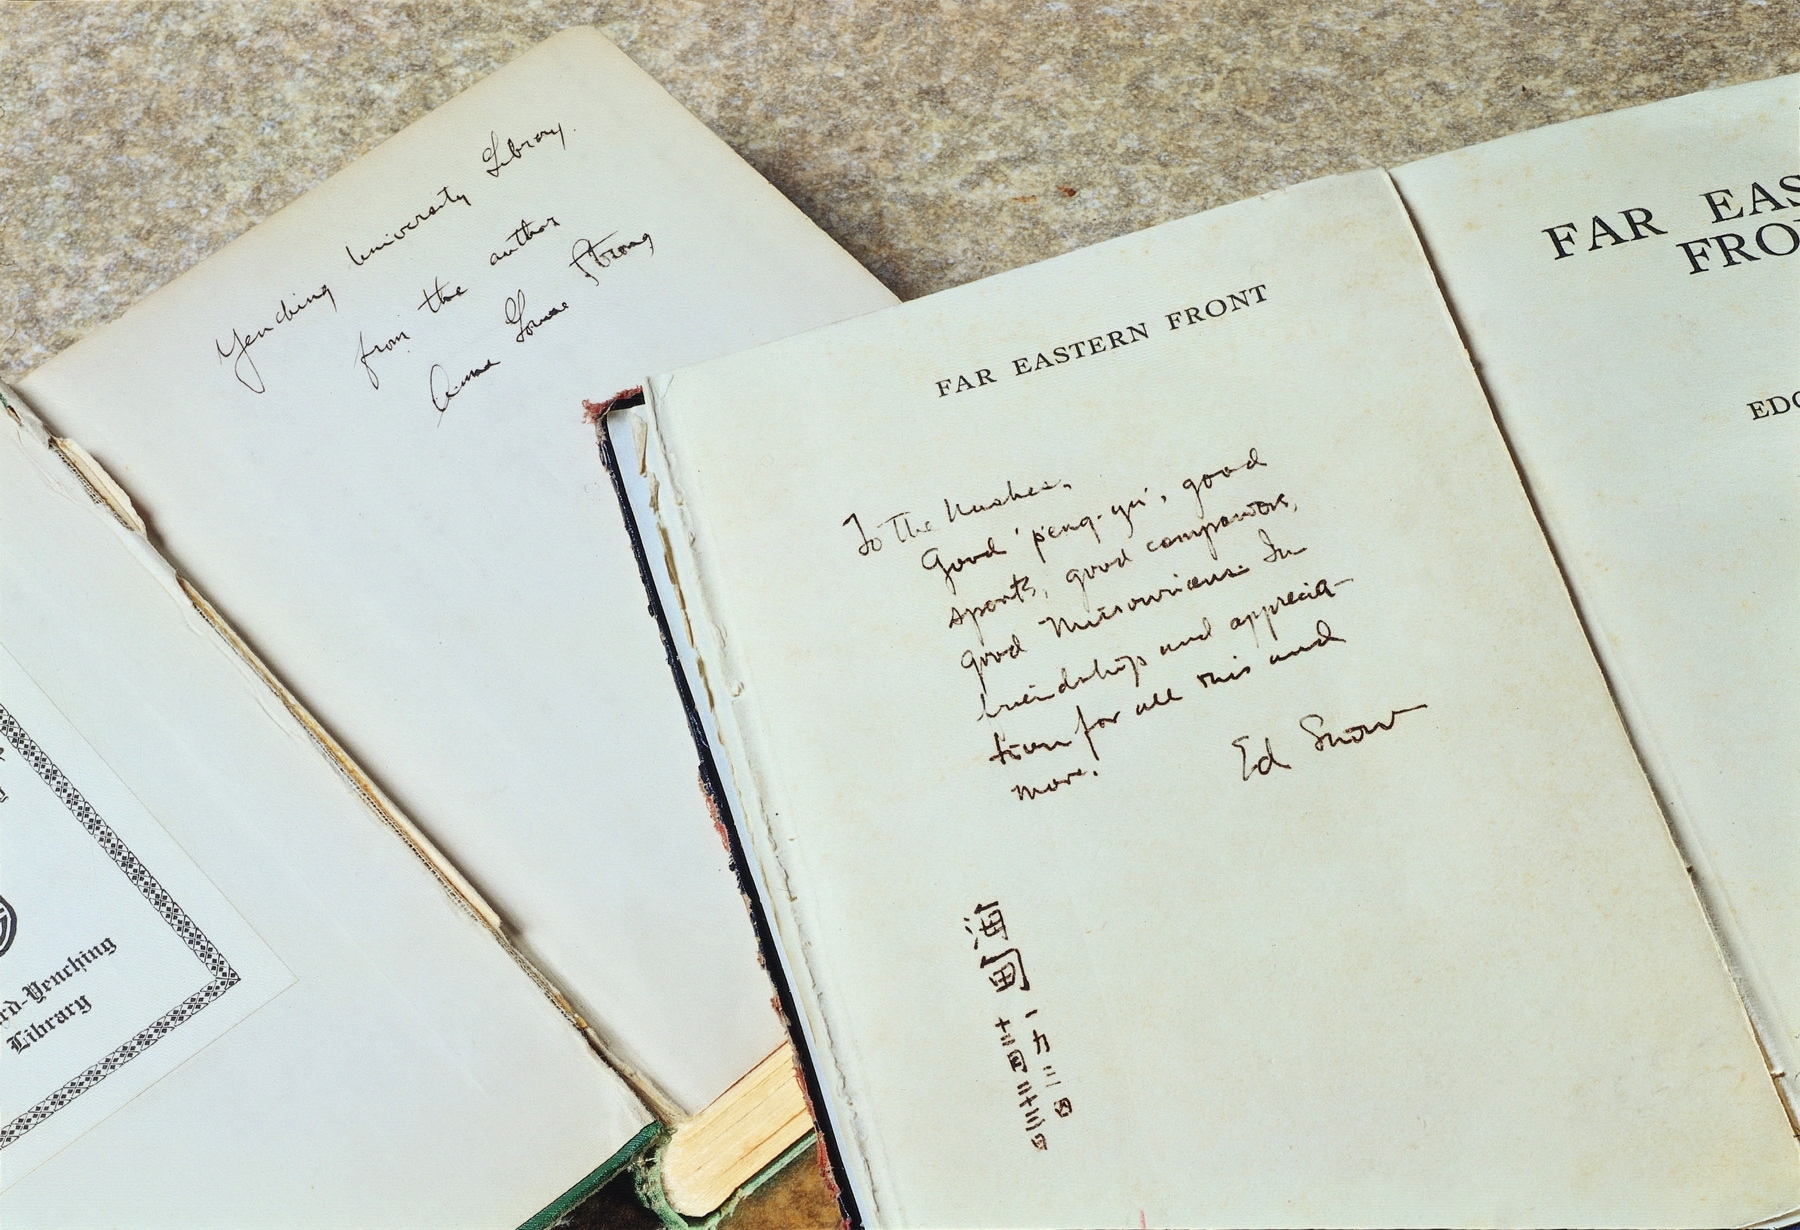 Yenching University Library.
from the author
Anna Louise Strong
rd-Yenching
Library
FAR EASTERN FRONT
To The
Good 'peng-yu', good
sports, good companions,
good Missourians. In
friendship and apprecia-
tion for all this and
more.
Ed Snow
海甸
一九三四
FAR EAS
FRO
EDG